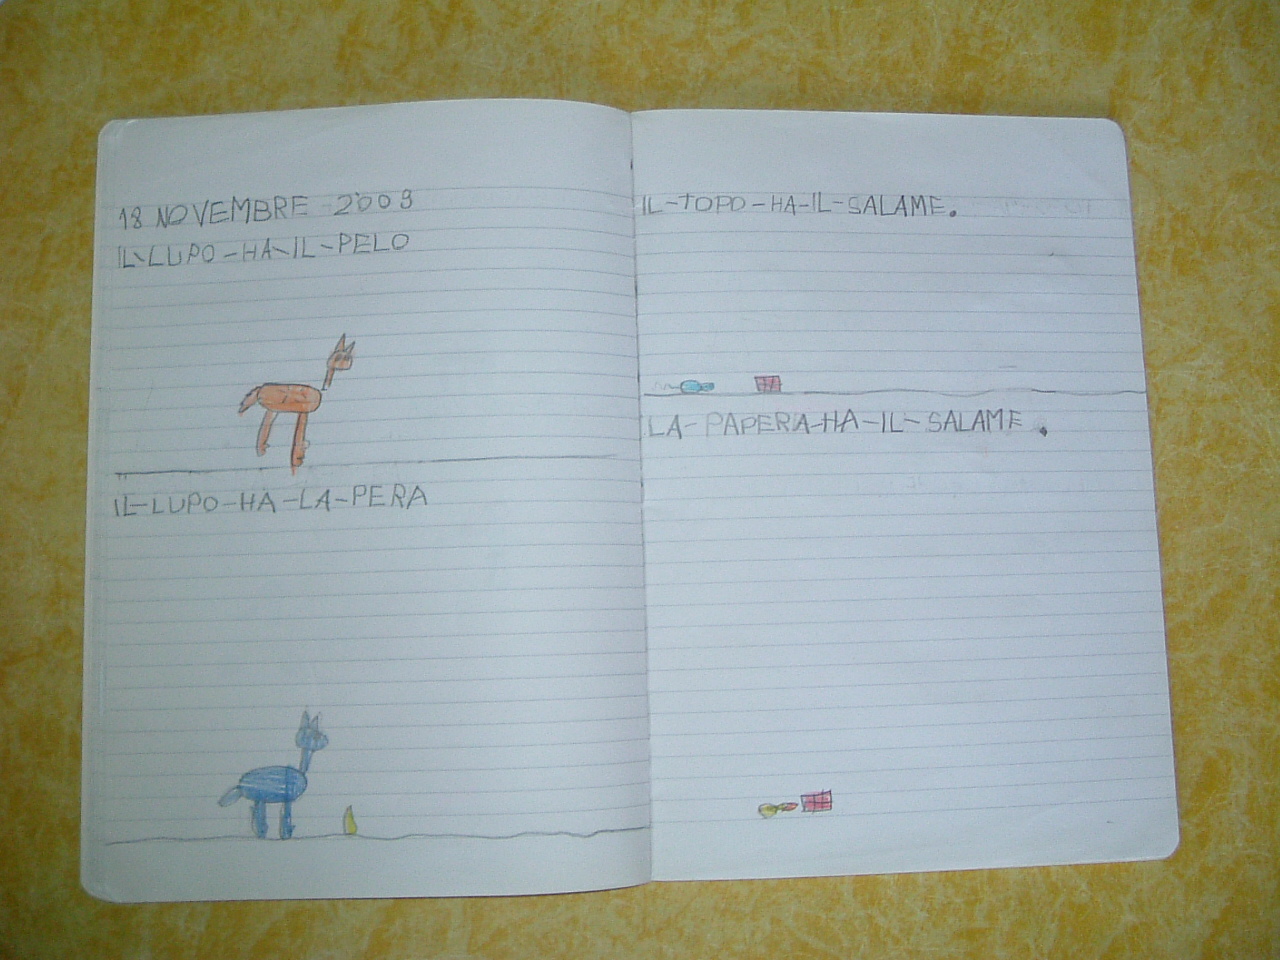 18 NOVEMBRE 2009
IL-LUPO-HA-IL-PELO
IL-LUPO-HA-LA-PERA
IL-TOPO-HA-IL-SALAME.
LA-PAPERA-HA-IL-SALAME.